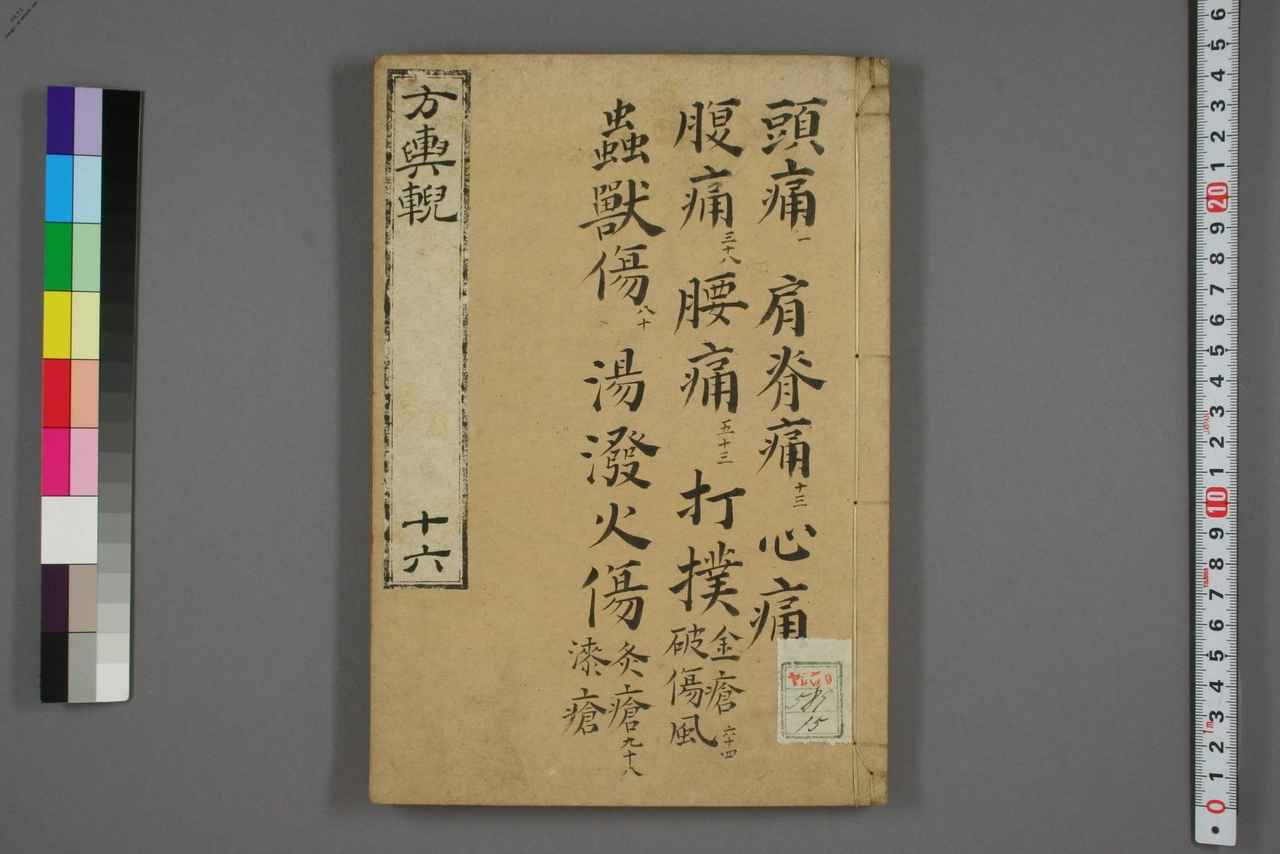 頭痛一 肩脊痛十三 心痛
腹痛三十八 腰痛五十三 打撲金瘡六十四破傷風
蟲獸傷八十 湯潑火傷灸瘡九十八漆瘡
方輿輗 十六
15